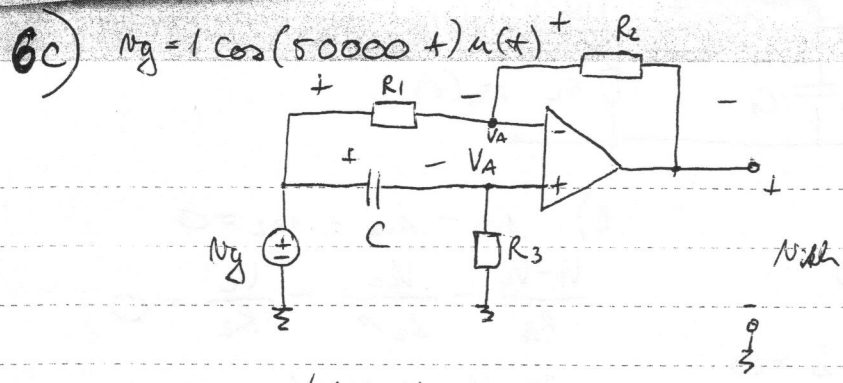 6c) vg = 1 cos(50000 t) u(t)
+ R2
+ R1 - -
VA -
+ - VA +
C +
vg + - R3
-